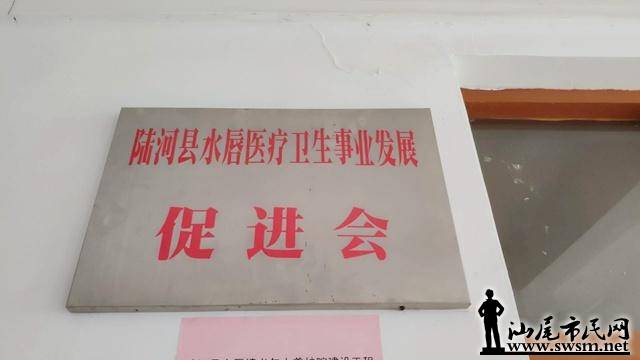 陆河县水唇医疗卫生事业发展
促进会
汕尾市民网
www.swsm.net